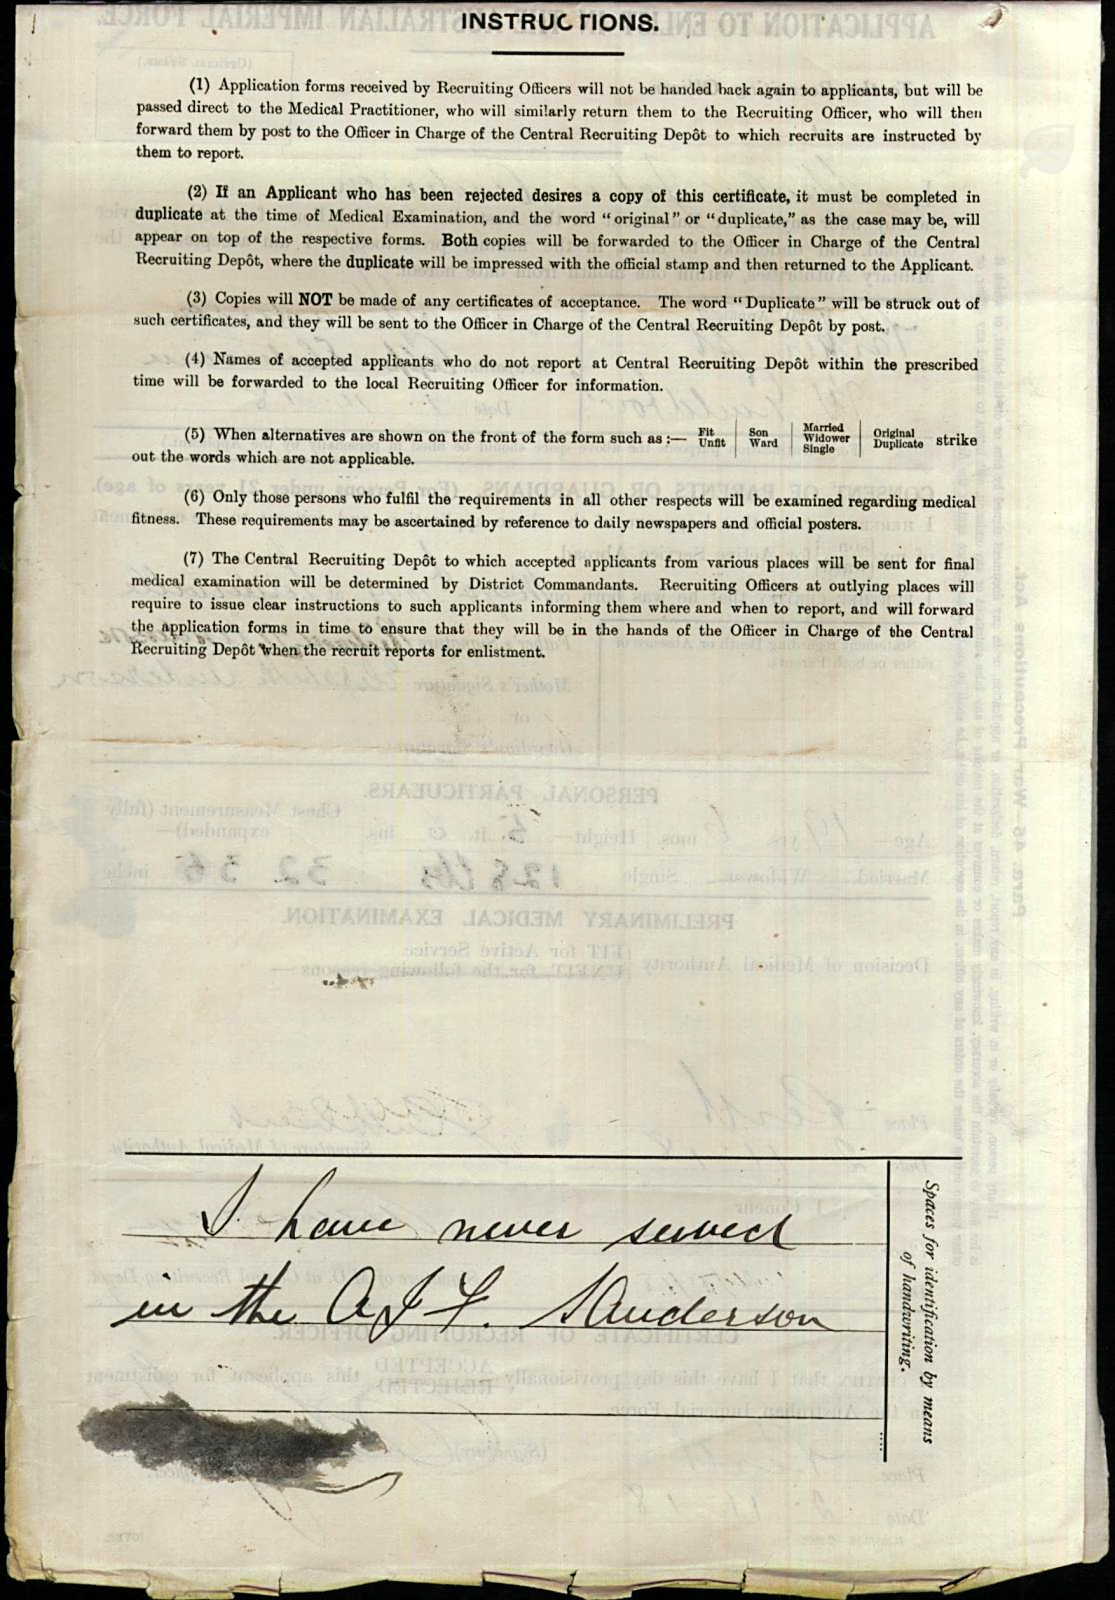 INSTRUCTIONS.
(1) Application forms received by Recruiting Officers will not be handed back again to applicants, but will be
passed direct to the Medical Practitioner, who will similarly return them to the Recruiting Officer, who will then
forward them by post to the Officer in Charge of the Central Recruiting Depôt to which recruits are instructed by
them to report.
(2) If an Applicant who has been rejected desires a copy of this certificate, it must be completed in
duplicate at the time of Medical Examination, and the word "original" or "duplicate," as the case may be, will
appear on top of the respective forms. Both copies will be forwarded to the Officer in Charge of the Central
Recruiting Depôt, where the duplicate will be impressed with the official stamp and then returned to the Applicant.
(3) Copies will NOT be made of any certificates of acceptance. The word "Duplicate" will be struck out of
such certificates, and they will be sent to the Officer in Charge of the Central Recruiting Depôt by post.
(4) Names of accepted applicants who do not report at Central Recruiting Depôt within the prescribed
time will be forwarded to the local Recruiting Officer for information.
(5) When alternatives are shown on the front of the form such as :— Fit Unfit | Son Ward | Married Widower Single | Original Duplicate strike
out the words which are not applicable.
(6) Only those persons who fulfil the requirements in all other respects will be examined regarding medical
fitness. These requirements may be ascertained by reference to daily newspapers and official posters.
(7) The Central Recruiting Depôt to which accepted applicants from various places will be sent for final
medical examination will be determined by District Commandants. Recruiting Officers at outlying places will
require to issue clear instructions to such applicants informing them where and when to report, and will forward
the application forms in time to ensure that they will be in the hands of the Officer in Charge of the Central
Recruiting Depôt when the recruit reports for enlistment.
I have never served
in the A I F. SAnderson
Spaces for identification by means
of handwriting.